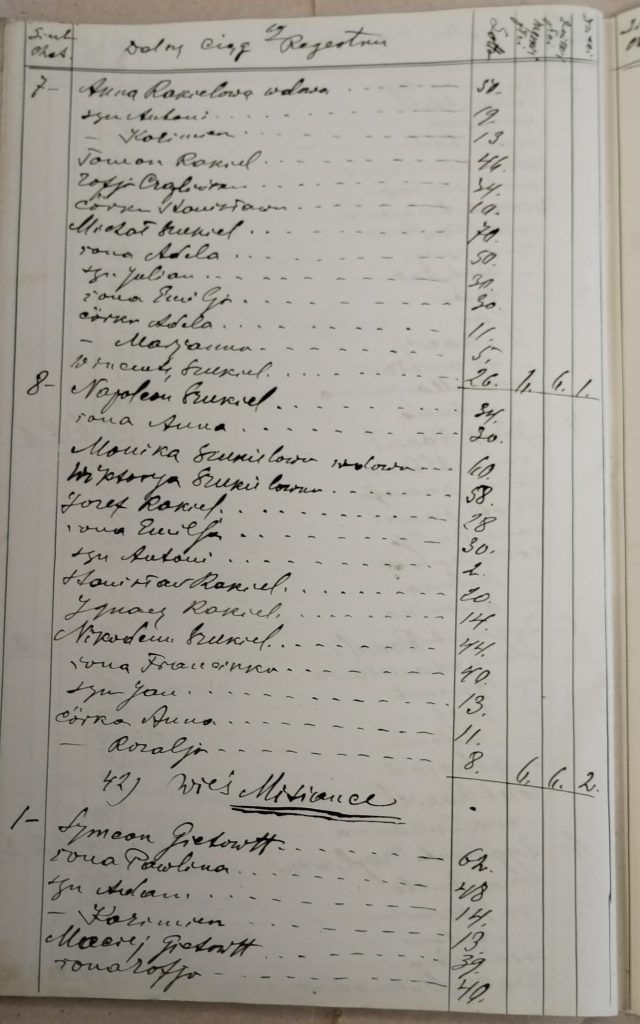 Dalszy ciąg Regestru Lata
7- Anna Rakielowa wdowa 50.
syn Antoni 19.
- Kazimierz 13.
Tomasz Rakiel 46.
Zofja 34.
córka Stanisława 10.
Michał Szukiel 70.
żona Adela 50.
syn Julian 30.
żona Emilja 30.
córka Adela 11.
- Marjanna 5.
Wincenty Szukiel 26. 7. 6. 1.
8- Napoleon Szukiel 34.
żona Anna 30.
Monika Szukielowa wdowa 60.
Wiktorya Szukielowna 58.
Jozef Rakiel 28
żona Emilja 30.
syn Antoni 2.
Stanisław Rakiel 20.
Ignacy Rakiel 14.
Nikodem Szukiel 44.
żona Franciszka 40.
syn Jan 13.
córka Anna 11.
- Rozalja 8. 6. 6. 2.
42) Wieś Misiance
1- Symeon Gietowtt 62.
żona Pawlina 48
syn Adam 14.
- Kazimierz 13.
Maciej Gietowtt 39.
żona Zofja 40.